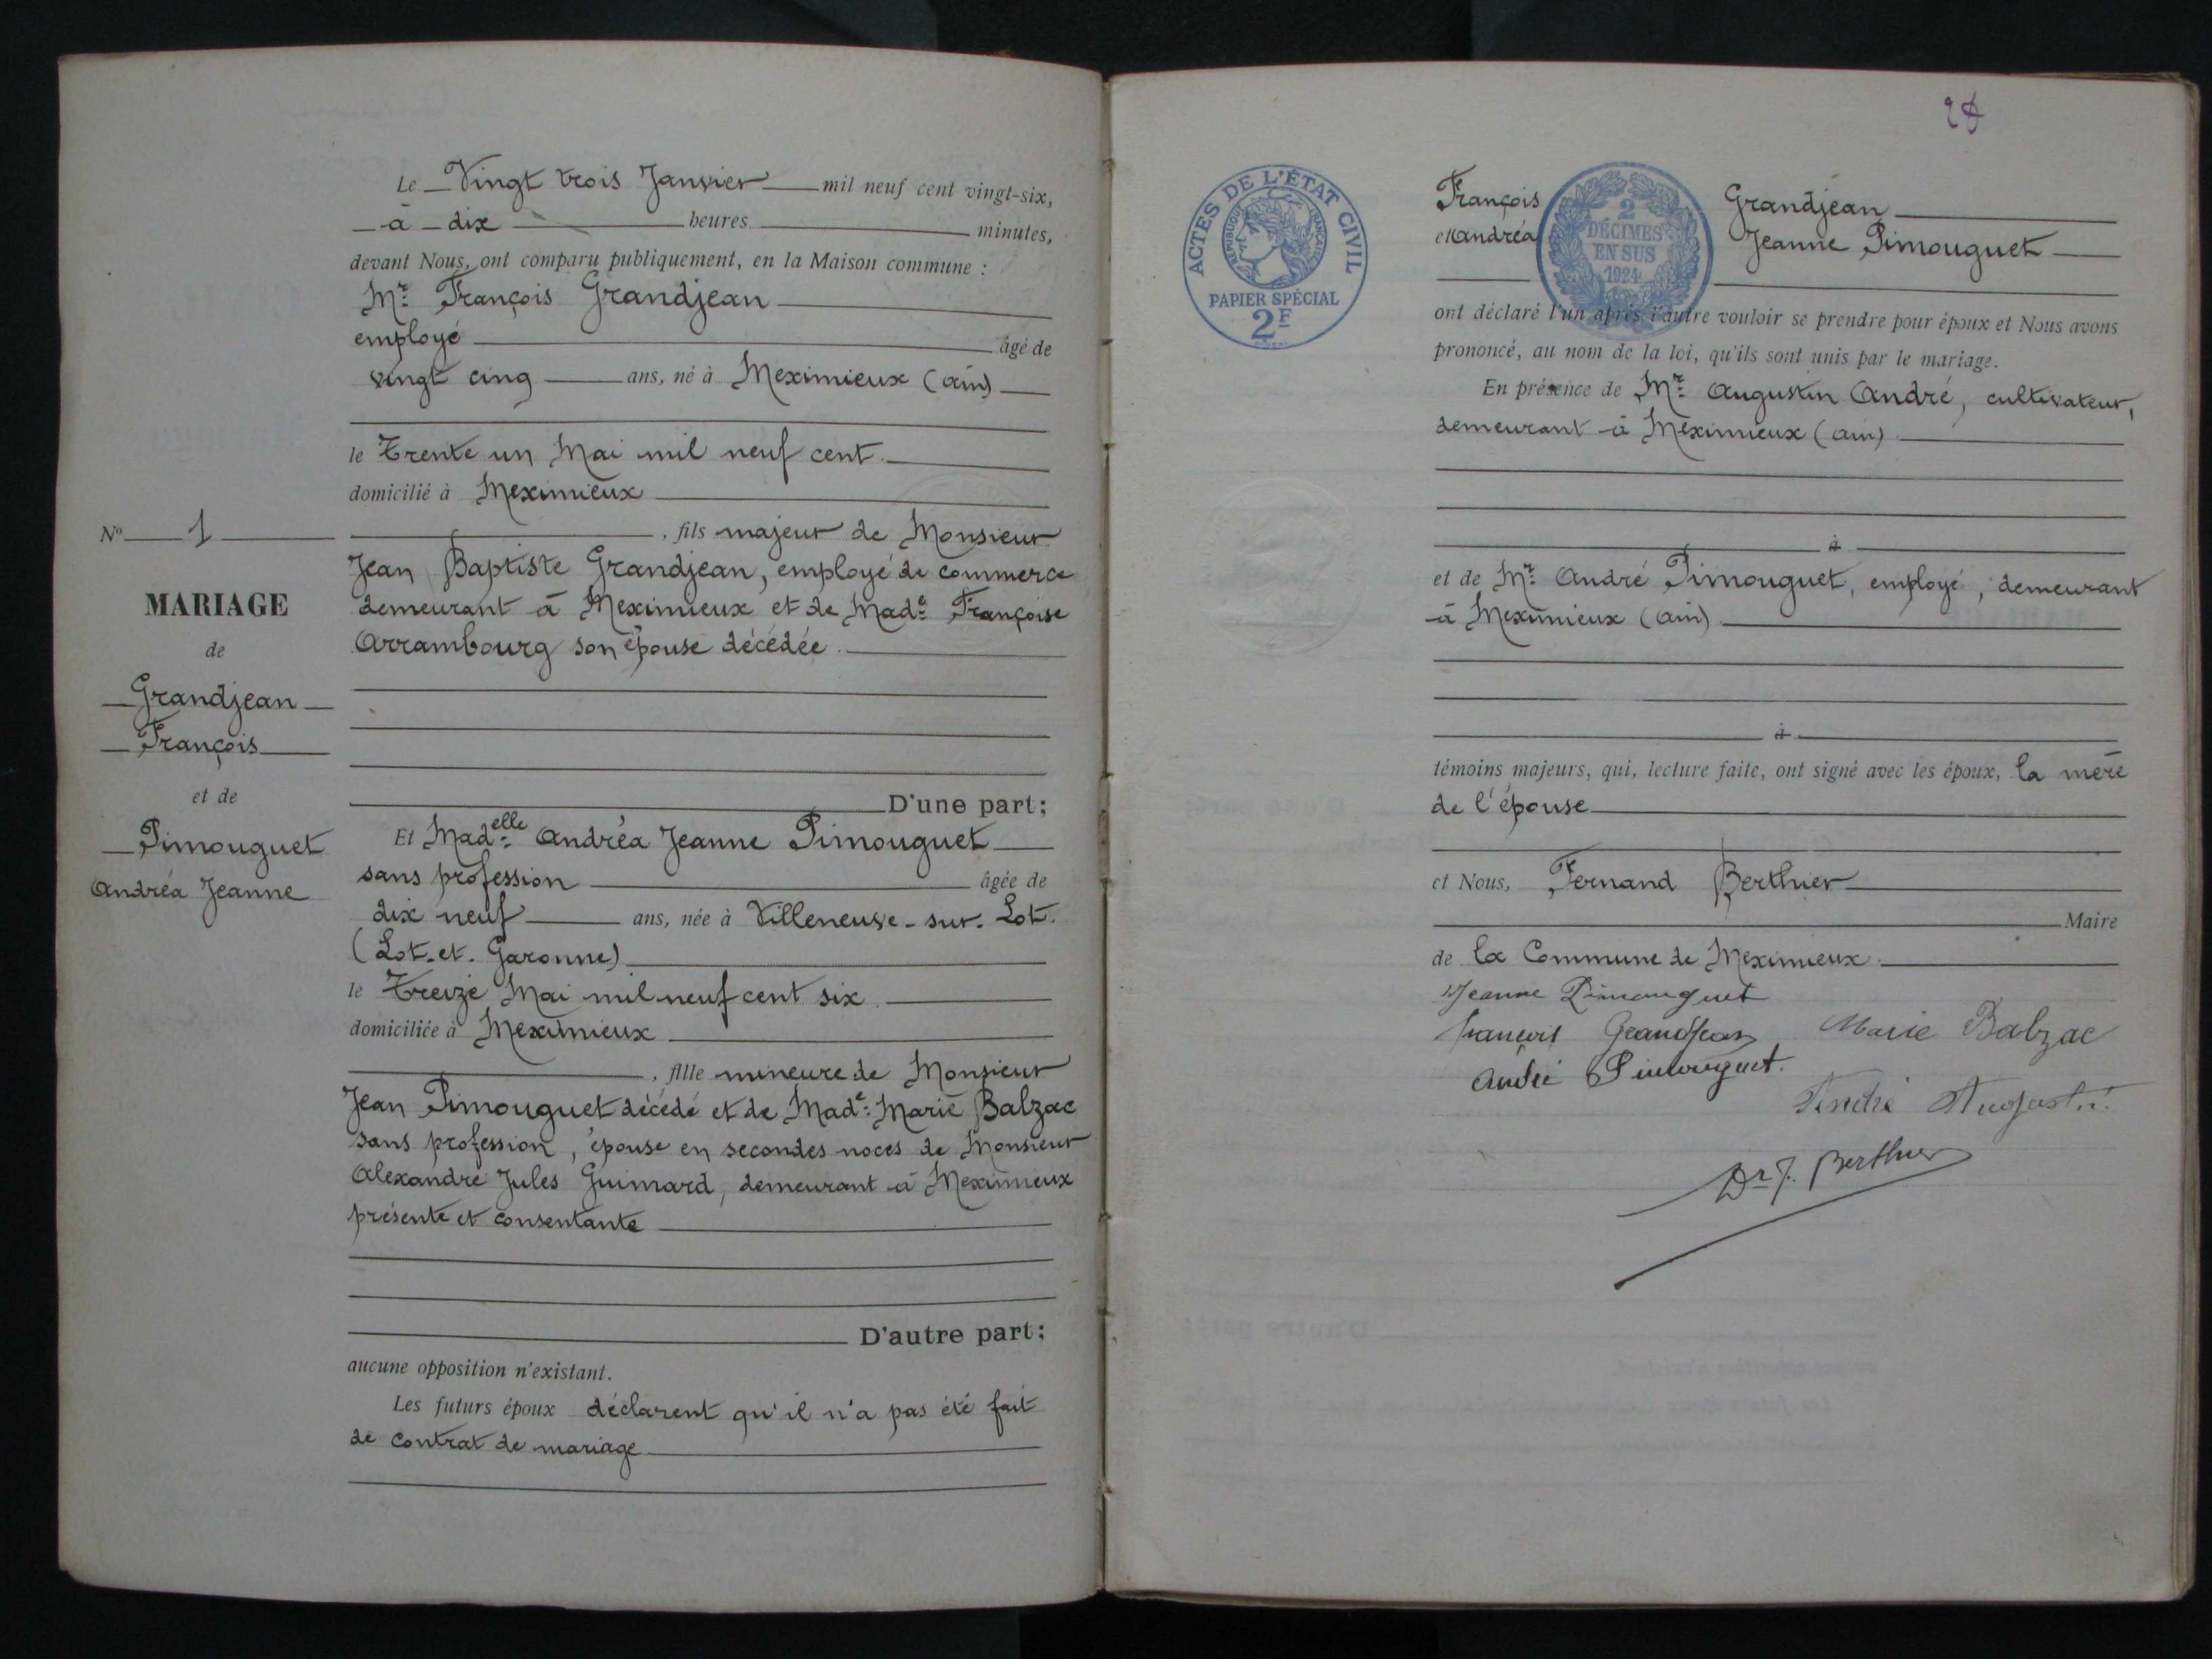 Le Vingt trois Janvier mil neuf cent vingt-six,
à dix heures minutes,
devant Nous, ont comparu publiquement, en la Maison commune :
Mr François Grandjean
employé âgé de
vingt cinq ans, né à Meximieux (Ain)
le Trente un Mai mil neuf cent.
domicilié à Meximieux
, fils majeur de Monsieur
Jean Baptiste Grandjean, employé de commerce
demeurant à Meximieux et de Made Françoise
Arrambourg son épouse décédée.
D'une part;
Et Madelle Andréa Jeanne Pimouguet
sans profession âgée de
dix neuf ans, née à Villeneuve-sur-Lot.
(Lot-et-Garonne)
le Treize Mai mil neuf cent six.
domiciliée à Meximieux
, fille mineure de Monsieur
Jean Pimouguet décédé et de Made Marie Balzac
sans profession, épouse en secondes noces de Monsieur
Alexandre Jules Guimard, demeurant à Meximieux
présente et consentante
D'autre part;
aucune opposition n'existant.
Les futurs époux déclarent qu'il n'a pas été fait
de contrat de mariage
No 1
MARIAGE
de
Grandjean
François
et de
Pimouguet
Andréa Jeanne
ACTES DE L'ÉTAT CIVIL
RÉPUBLIQUE FRANÇAISE
PAPIER SPÉCIAL
2F
2
DÉCIMES
EN SUS
1924
François Grandjean
et Andréa Jeanne Pimouguet
ont déclaré l'un après l'autre vouloir se prendre pour époux et Nous avons
prononcé, au nom de la loi, qu'ils sont unis par le mariage.
En présence de Mr Augustin André, cultivateur,
demeurant à Meximieux (Ain).
à
et de Mr André Pimouguet, employé, demeurant
à Meximieux (Ain)
à
témoins majeurs, qui, lecture faite, ont signé avec les époux, la mère
de l'épouse
et Nous, Fernand Berthier
Maire
de la Commune de Meximieux.
Jeanne Pimouguet
françois Grandjean Marie Balzac
André Pimouguet.
André Augustin
Dr F. Berthier